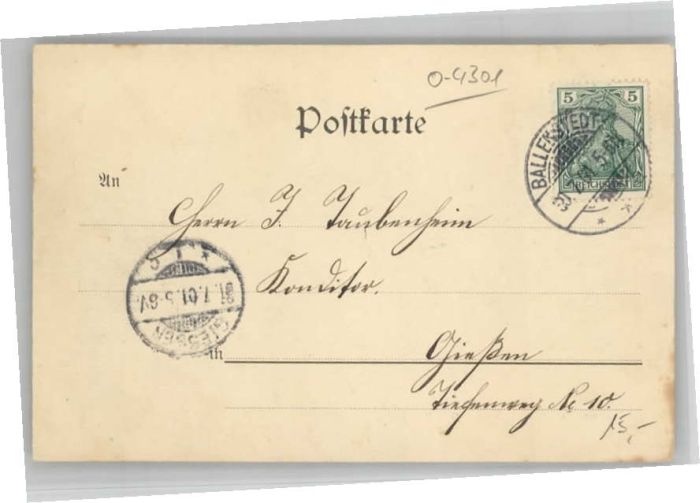 O-4301
5 5
REICHSPOST
BALLENSTEDT
Postkarte
An
Herrn J. Taubenheim
Konditor.
GIESSEN
31.7.01.5-6V.
in Gießen
Tiefenweg No 10.
15,-